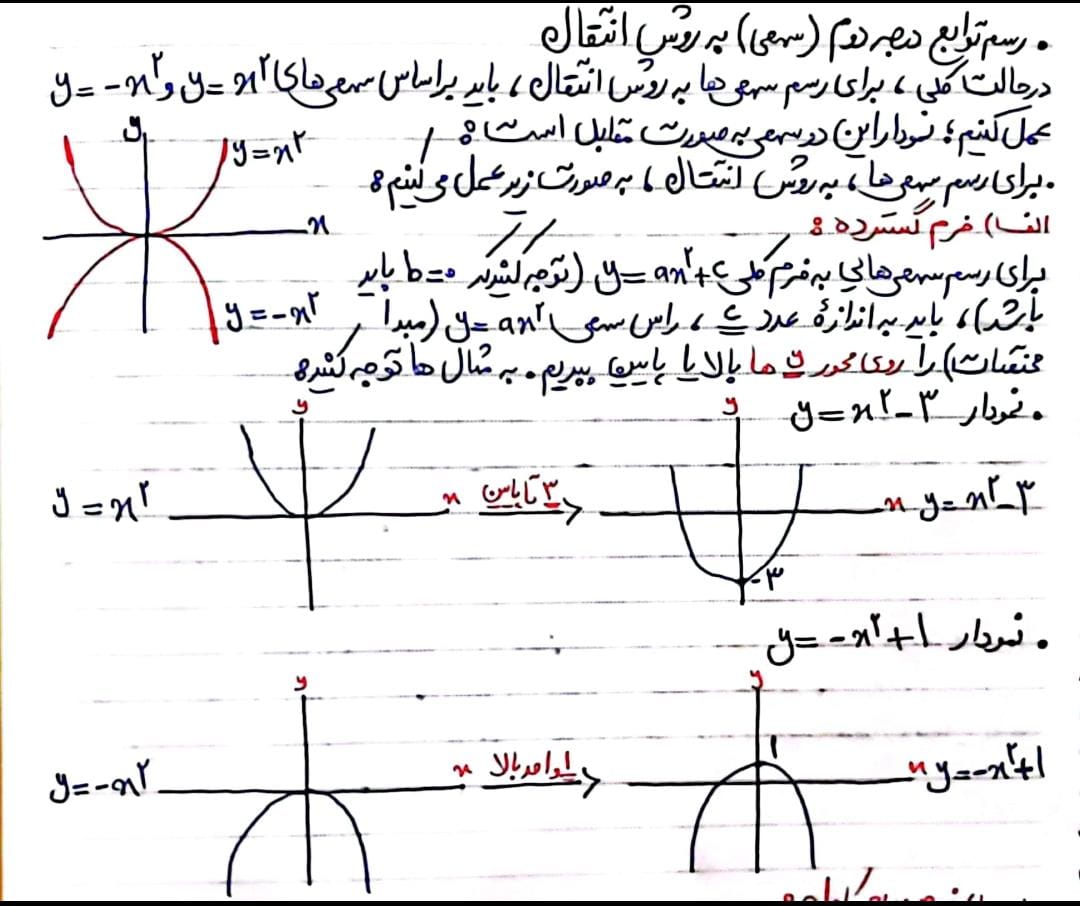 • رسم توابع درجه دوم (سهمی) به روش انتقال
درحالت کلی، برای رسم سهمی ها به روش انتقال، باید براساس سهمی های y = x² و y = -x²
عمل کنیم؛ نمودار این دو سهمی به صورت مقابل است:
y
y = x²
• برای رسم سهمی ها، به روش انتقال، به صورت زیر عمل می کنیم:
x
الف) فرم گسترده:
برای رسم سهمی هایی به فرم کلی y = ax² + c (توجه کنید b = ۰ باید
y = -x²
باشد)، باید به اندازهٔ عدد c، راس سهمی y = ax² (مبدأ
مختصات) را روی محور y ها بالا یا پایین ببریم. به مثال ها توجه کنید:
• نمودار y = x² - ۳
y
y
y = x²
x
۳ تا پایین
x
y = x² - ۳
-۳
• نمودار y = -x² + ۱
y
y
y = -x²
x
۱ واحد بالا
۱
x
y = -x² + ۱